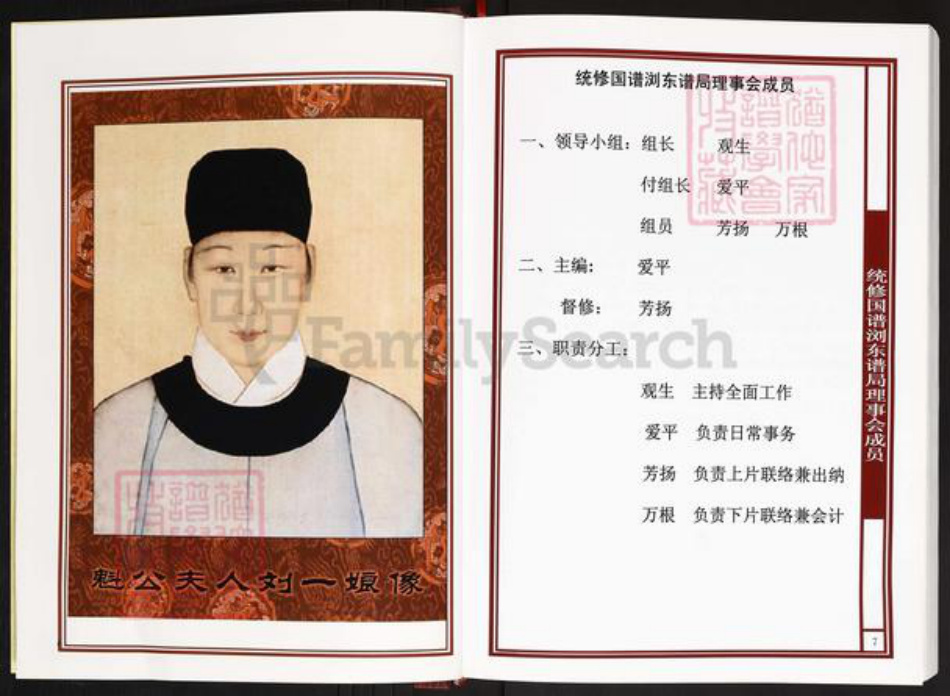 魁公夫人刘一娘像
统修国谱浏东谱局理事会成员
一、领导小组：组长 观生
付组长 爱平
组员 芳扬 万根
二、主编： 爱平
督修： 芳扬
三、职责分工：
观生 主持全面工作
爱平 负责日常事务
芳扬 负责上片联络兼出纳
万根 负责下片联络兼会计
统修国谱浏东谱局理事会成员
7
FamilySearch